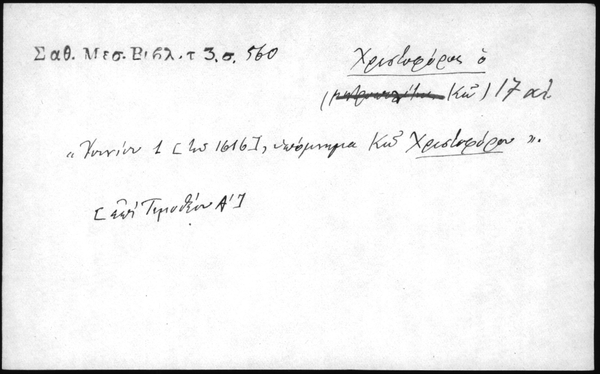 Σαθ. Μεσ. Βιβλ. τ 3. σ. 560
Χριστοφόρος ὁ
(μητροπολίτης Κῶ) 17 αἰ.
"Ἰουνίου 1 [τοῦ 1616], ὑπόμνημα Κῶ Χριστοφόρου".
[ἐπὶ Τιμοθέου Α']